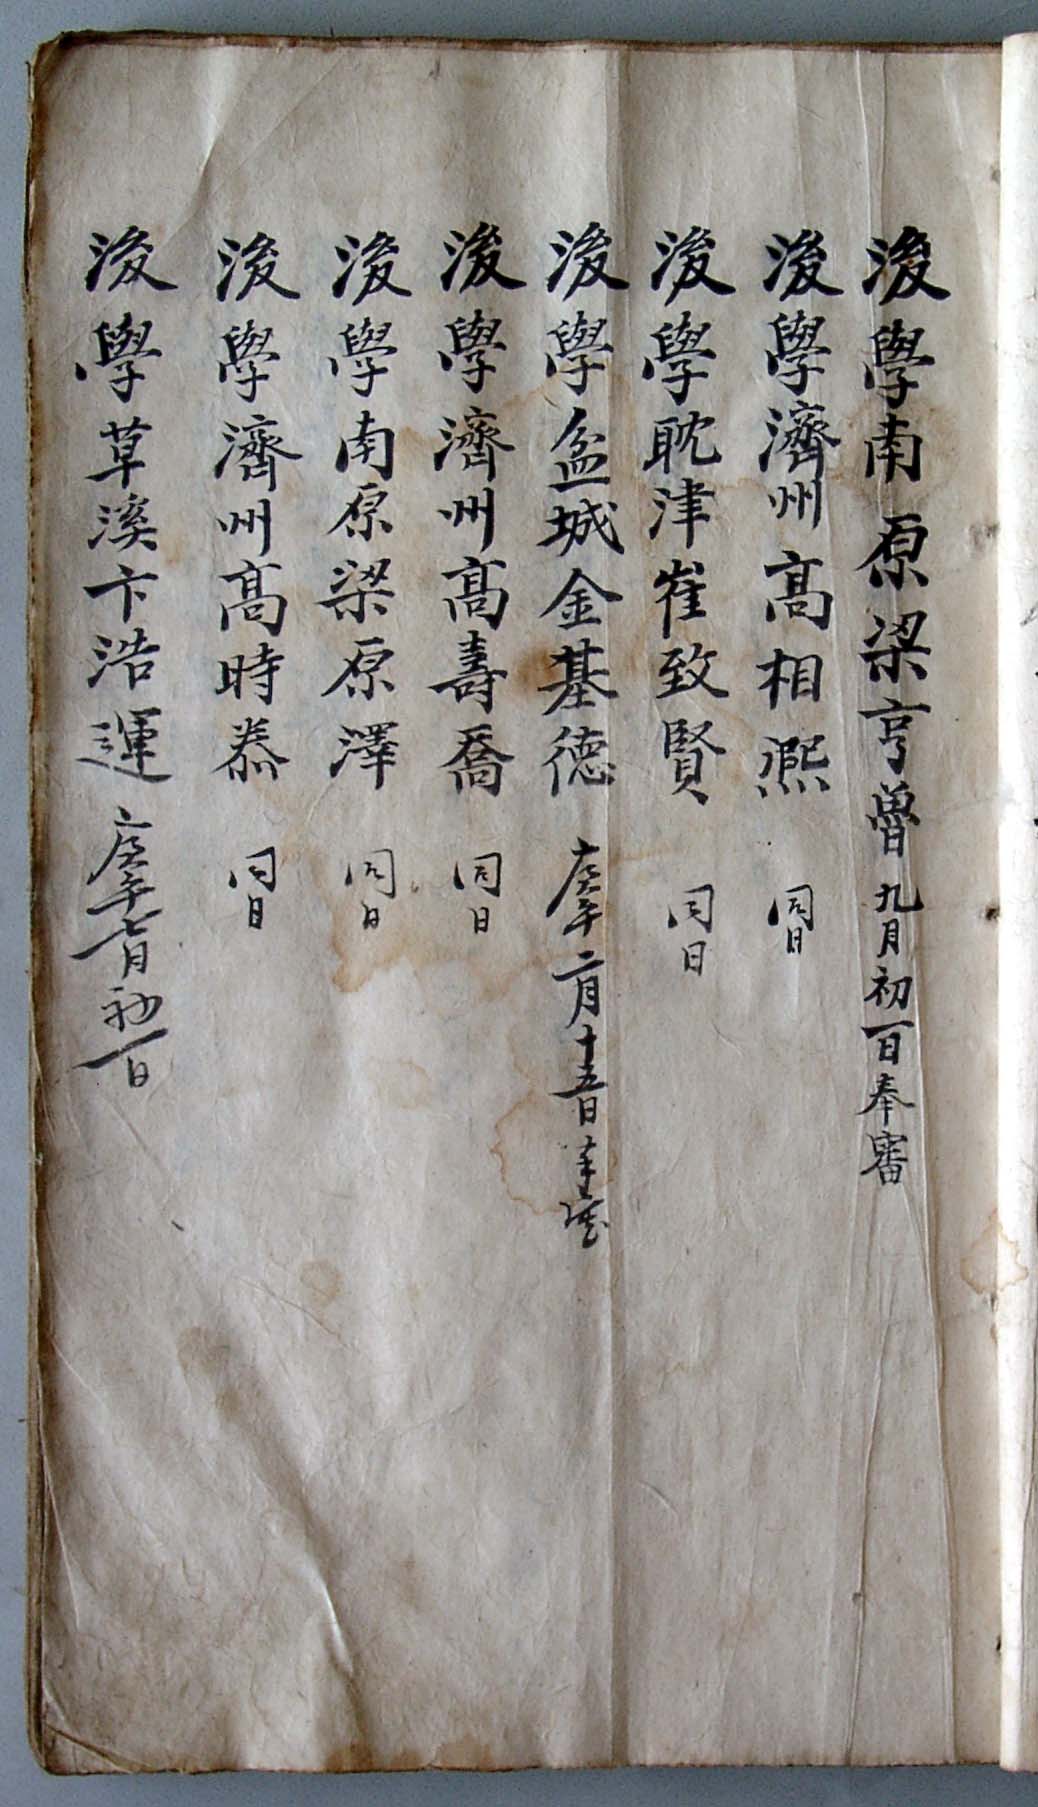 後學南原梁亨魯 九月初一日奉審
後學濟州高相熙 同日
後學耽津崔致賢 同日
後學盆城金基德 庚午二月十五日奉審
後學濟州高壽喬 同日
後學南原梁原澤 同日
後學濟州高時泰 同日
後學草溪卞浩運 庚午七月初一日